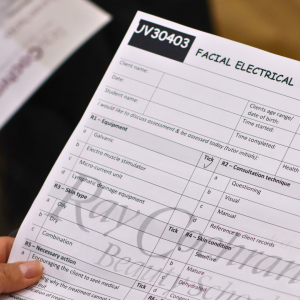 UV30403
FACIAL ELECTRICAL
Client name:
Date:
Student name:
Clients age range/
date of birth:
Time started:
Time completed:
I would like to discuss assessment & be assessed today (tutor initials):
Health
R1 – Equipment
Tick
R2 – Consultation technique
a
Galvanic
a
Questioning
b
Electro muscle stimulator
b
Visual
c
Micro-current unit
c
Manual
d
Lymphatic drainage equipment
d
Reference to client records
R3 – Skin type
Tick
R4 – Skin condition
a
Oily
a
Sensitive
b
Dry
b
Mature
c
Combination
c
Dehydrated
R5 – Necessary action
Encouraging the client to seek medical
why the treatment cannot
Ray Cochrane
Beauty